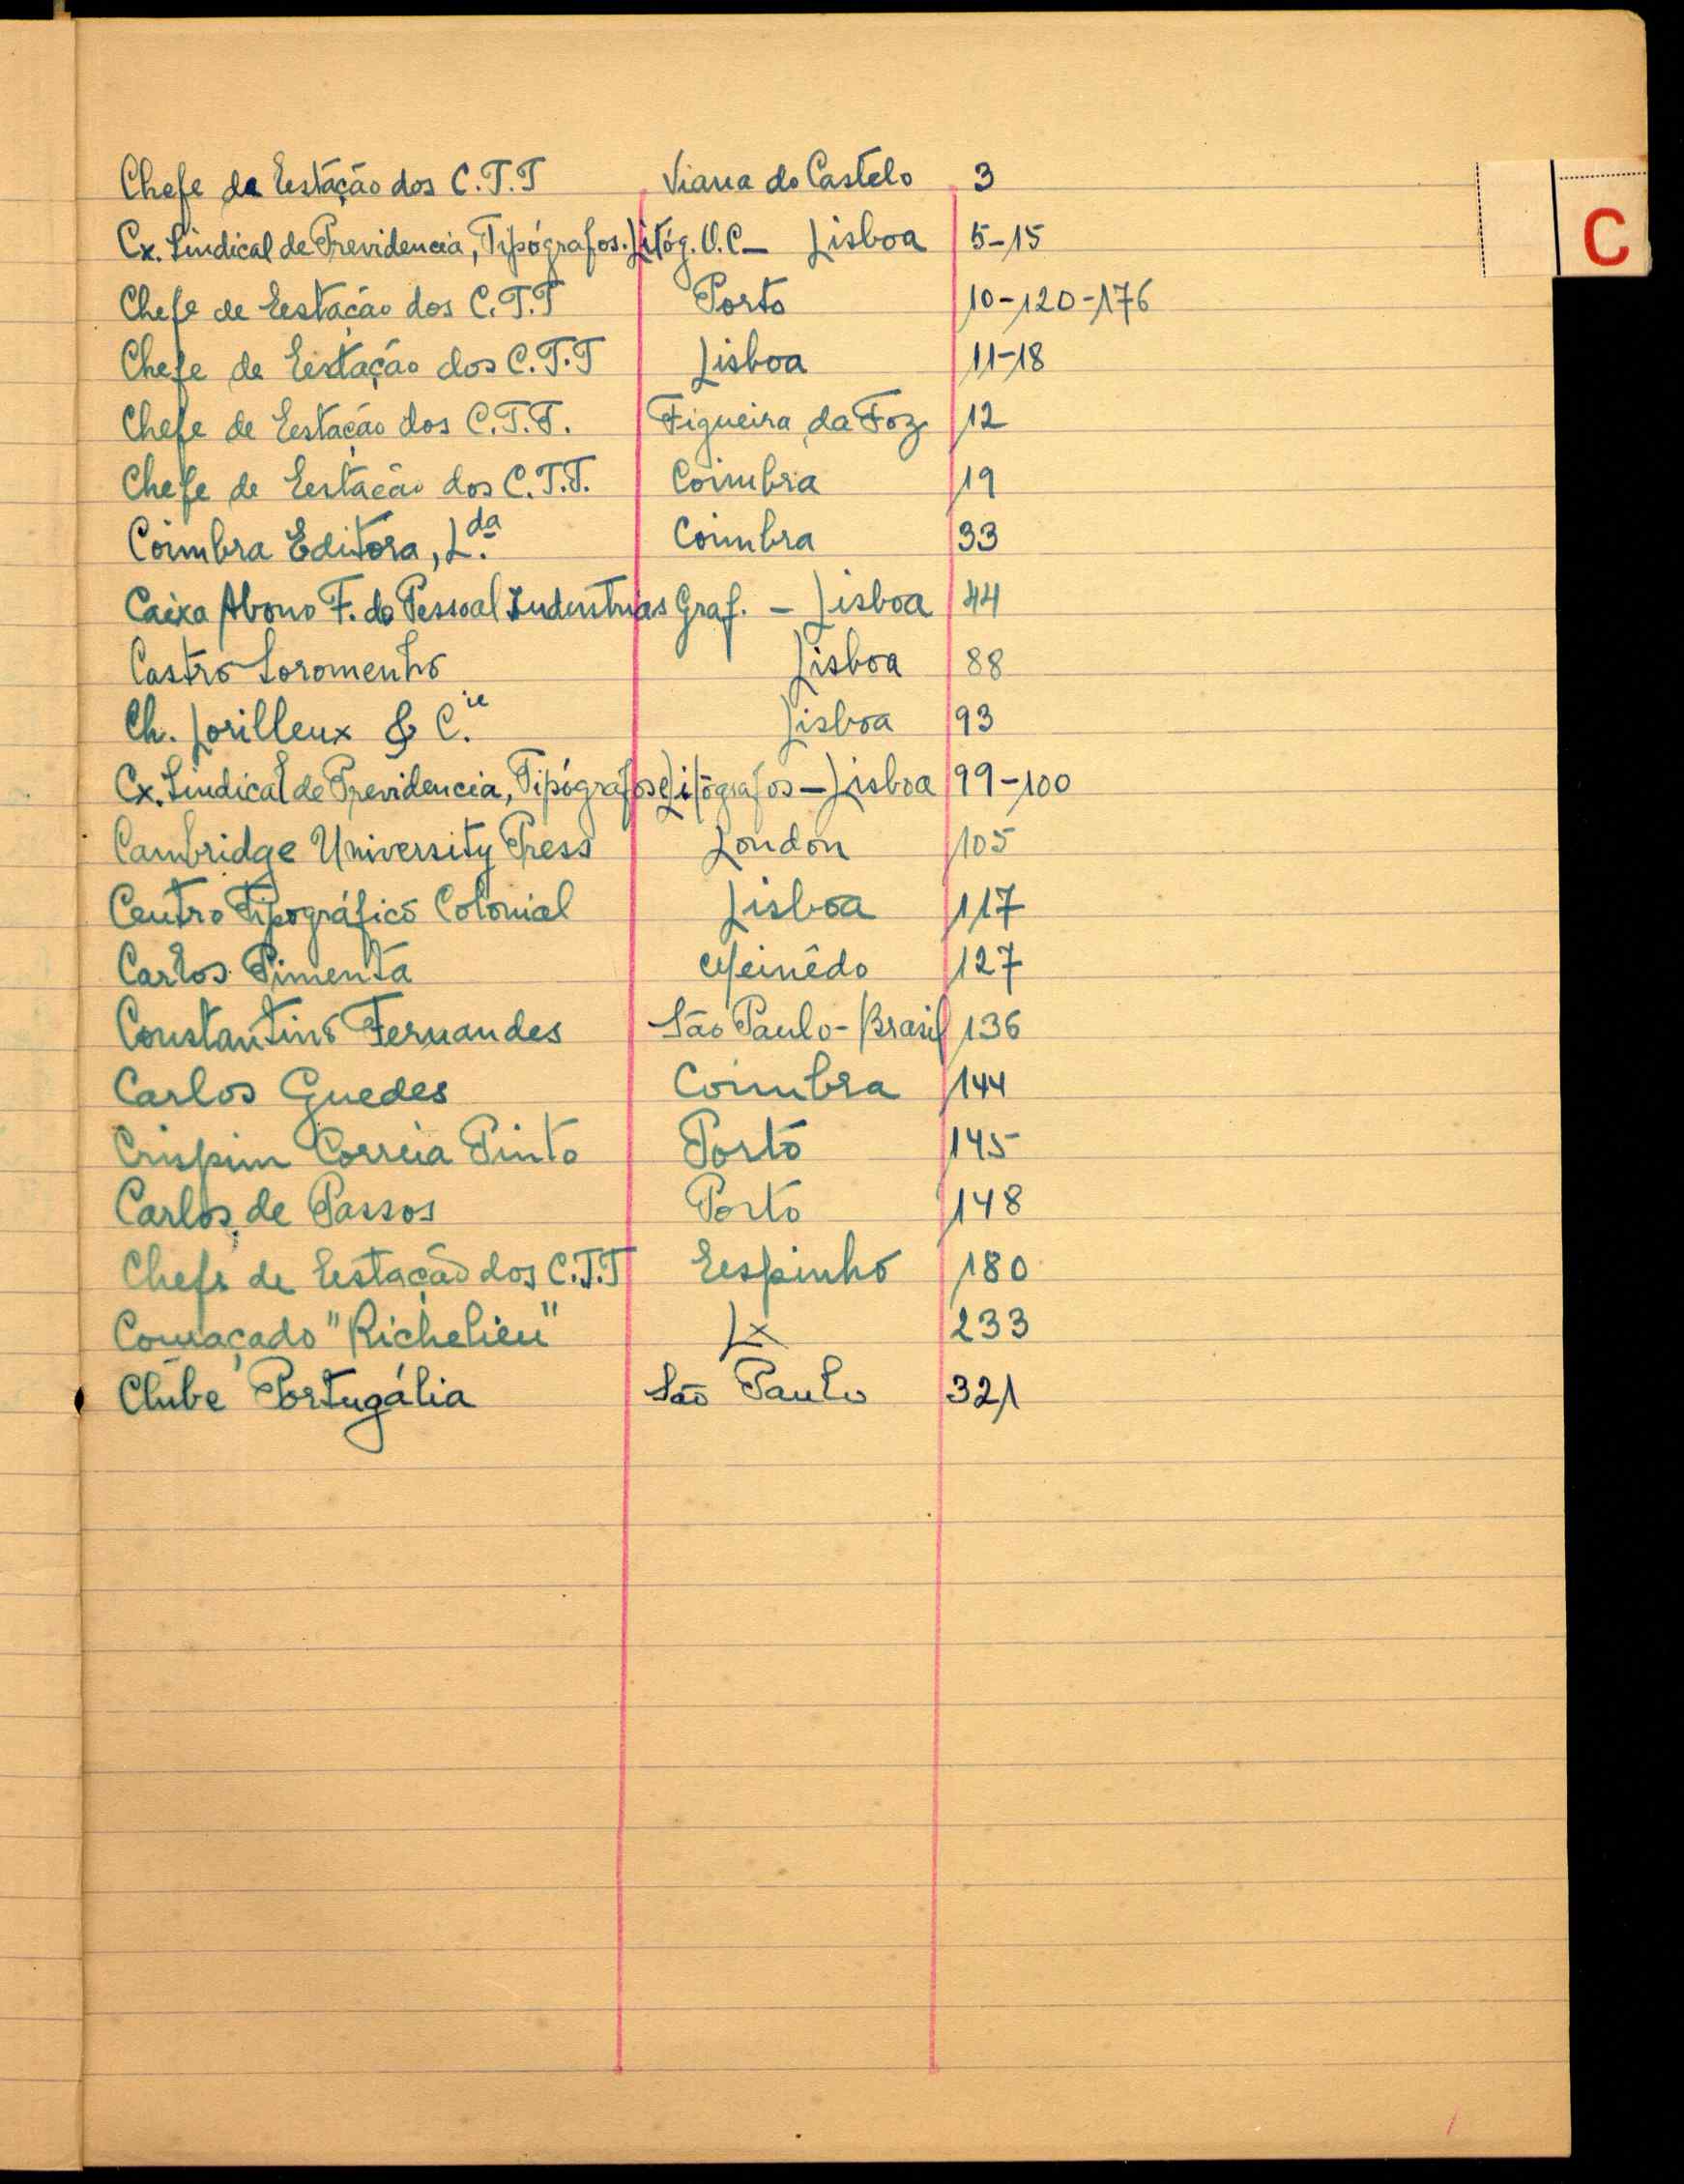 Chefe da Estação dos C.T.T Viana do Castelo 3
C
Cx. Sindical de Previdencia, Tipógrafos. Litóg. O.C - Lisboa 5-15
Chefe de Estação dos C.T.T Porto 10-120-176
Chefe de Estação dos C.T.T Lisboa 11-18
Chefe de Estação dos C.T.T. Figueira da Foz 12
Chefe de Estação dos C.T.T. Coimbra 19
Coimbra Editora, L.da Coimbra 33
Caixa Abono F. do Pessoal Industrias Graf. - Lisboa 44
Castro Soromenho Lisboa 88
Ch. Lorilleux & C.ie Lisboa 93
Cx. Sindical de Previdencia, Tipógrafos e Litógrafos - Lisboa 99-100
Cambridge University Press London 105
Centro Tipográfico Colonial Lisboa 117
Carlos Pimenta Meinêdo 127
Constantino Fernandes São Paulo - Brasil 136
Carlos Guedes Coimbra 144
Crispim Correia Pinto Porto 145
Carlos de Passos Porto 148
Chefe de Estação dos C.T.T Espinho 180
Comaçado "Richelieu" Lx 233
Clube Portugália São Paulo 321